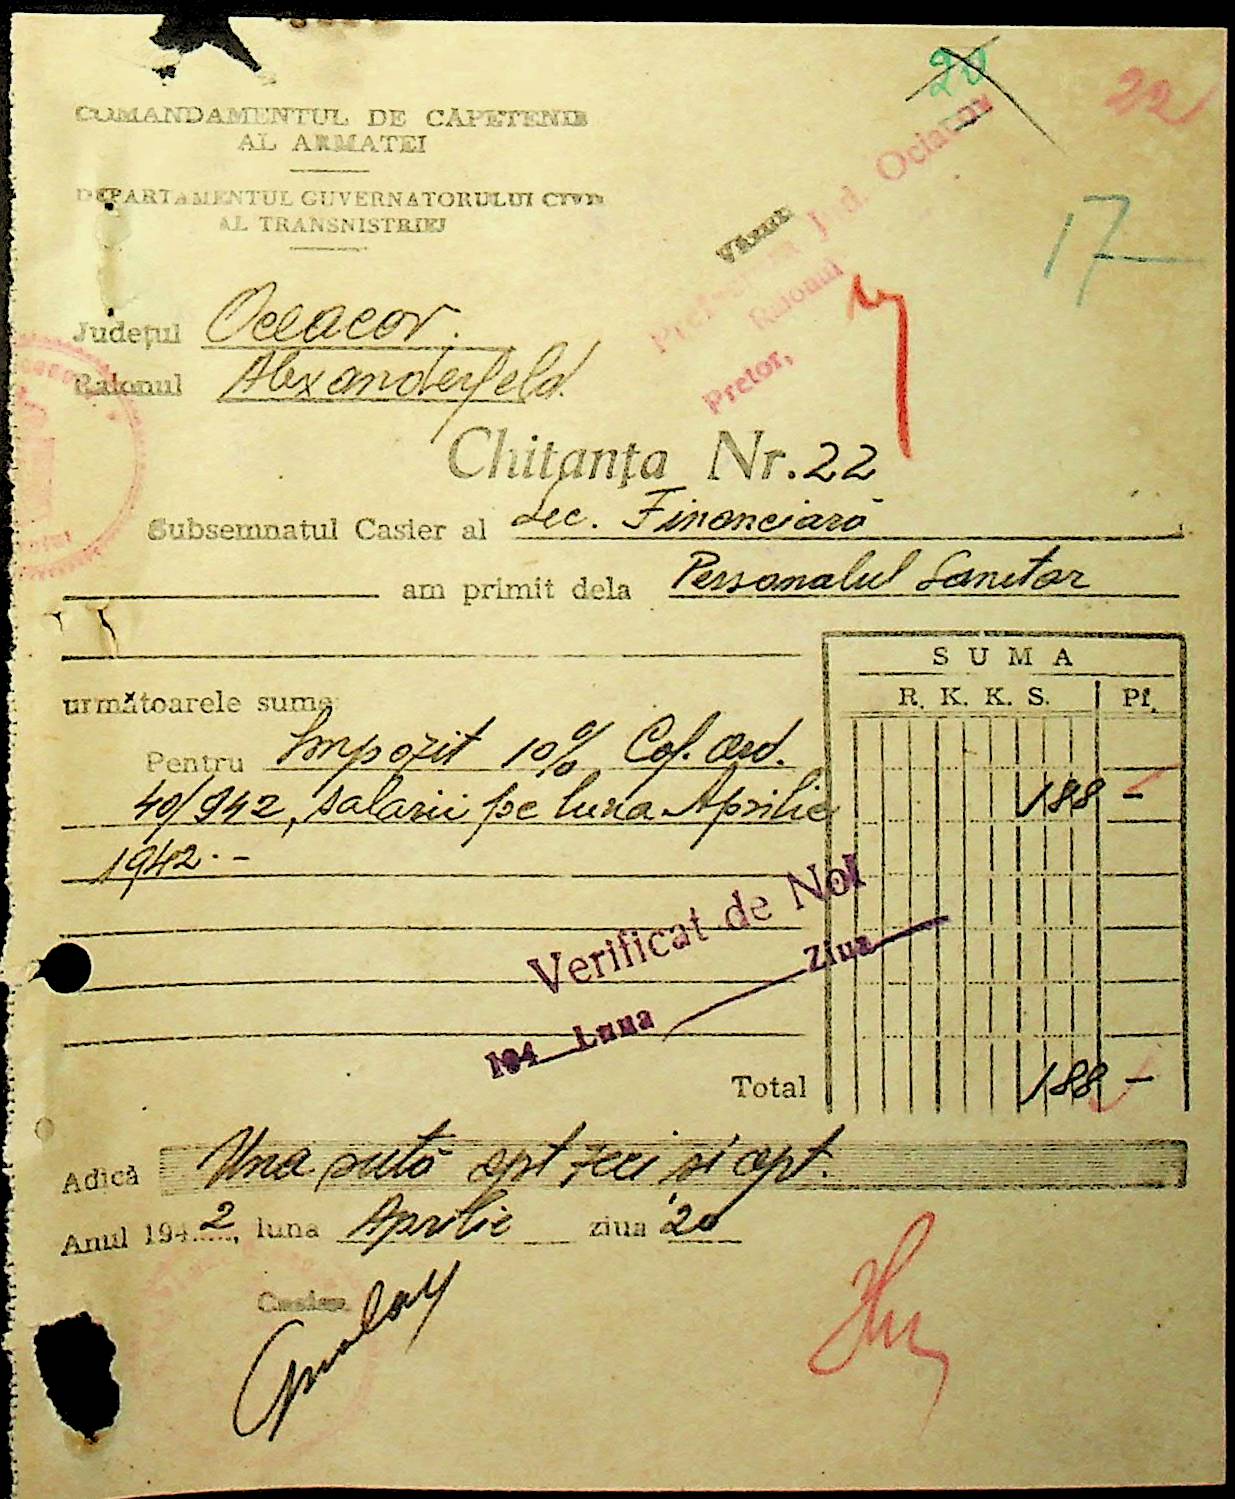 20
22
COMANDAMENTUL DE CAPETENIE
AL ARMATEI
DEPARTAMENTUL GUVERNATORULUI CIVIL
AL TRANSNISTRIEI
Văzut
Prefectura Jud. Ociacov
Raionul
Pretor,
17
Județul Oceacov.
Raionul Alexanderfeld.
Chitanța Nr. 22
Subsemnatul Casier al Sec. Financiară
am primit dela Personalul Sanitar
următoarele sume
SUMA
R. K. K. S. Pf.
Pentru Impozit 10% Cof. Ord.
40/942, salarii pe luna Aprilie 188 -
1942.-
Verificat de Noi
194 Luna Ziua
Total 188 -
Adică Una sută opt zeci și opt.
Anul 1942, luna Aprilie ziua 20
Casier,